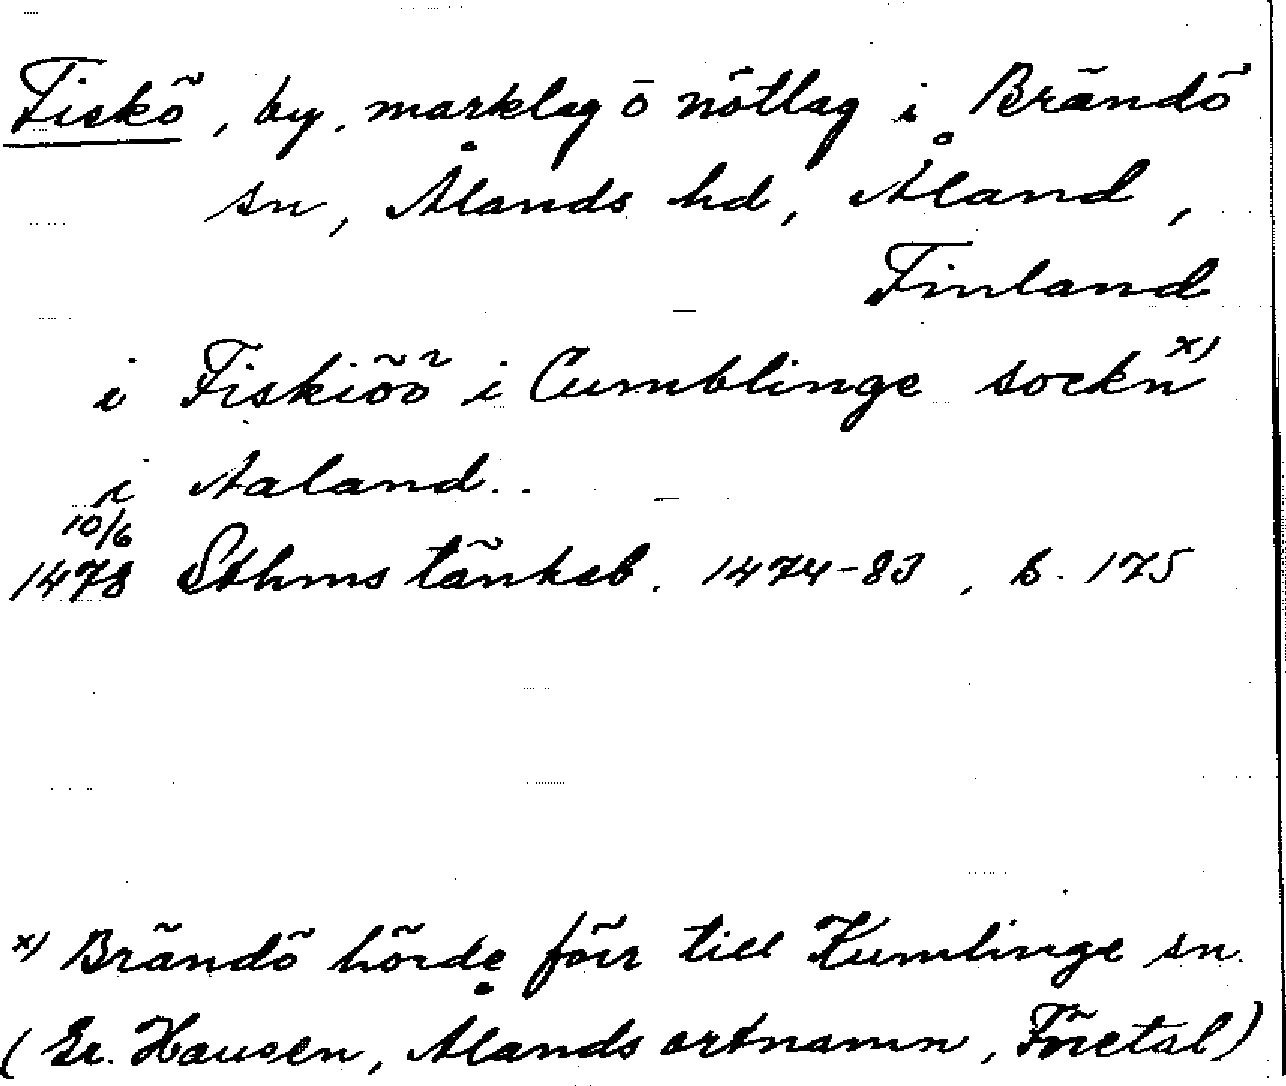 Fiskö, by, marklag o nötlag i Brändö
sn, Ålands hd, Åland,
Finland
i Fiskiöö i Cumblinge sockn x)
i Aaland..
10/6
1478 Sthms tänkeb. 1474-83, s. 175
x) Brändö hörde förr till Kumlinge sn.
(Gr. Hausen, Ålands ortnamn, Företal)